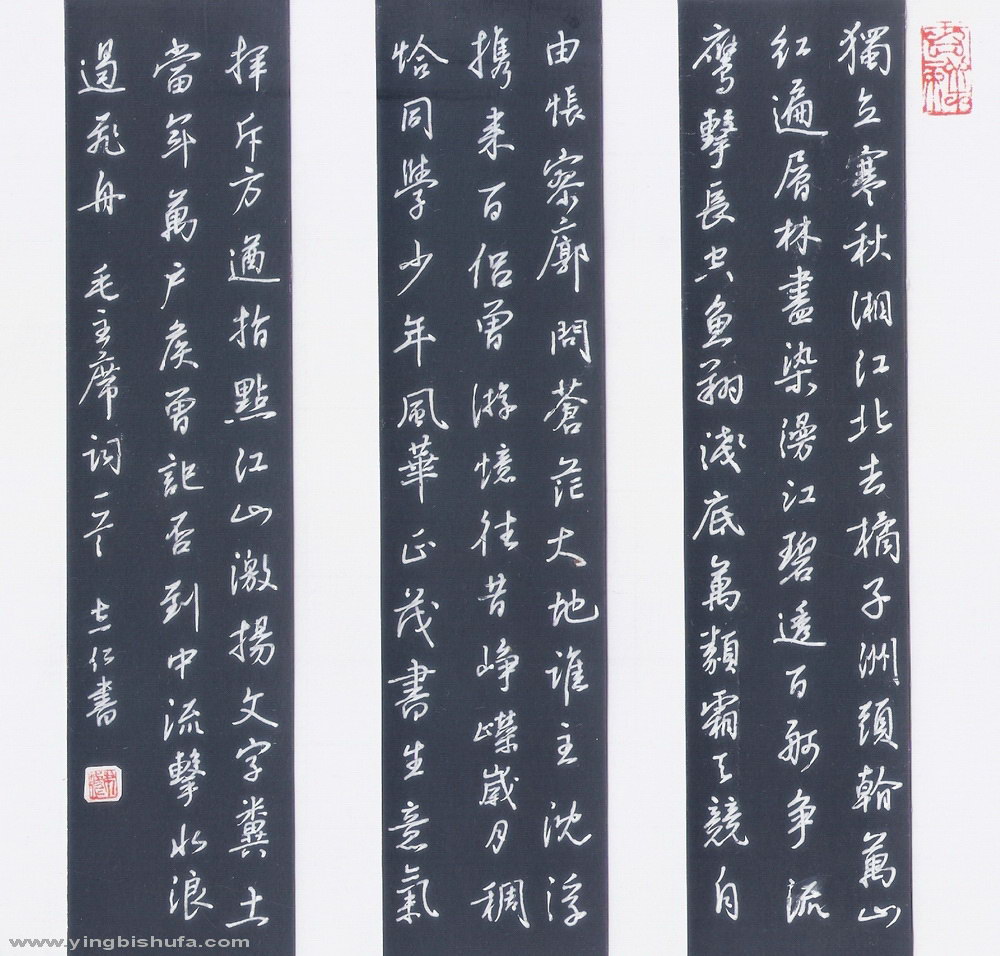 獨立寒秋湘江北去橘子洲頭看萬山
紅遍層林盡染漫江碧透百舸争流
鹰擊長空魚翔淺底萬類霜天競自
由悵寥廓問蒼茫大地誰主沈浮
携来百侣曾游憶往昔崢嶸歲月稠
恰同學少年風華正茂書生意氣
揮斥方遒指點江山激揚文字糞土
當年萬户侯曾記否到中流擊水浪
遏飛舟 毛主席詞一首 志仁書
www.yingbishufa.com